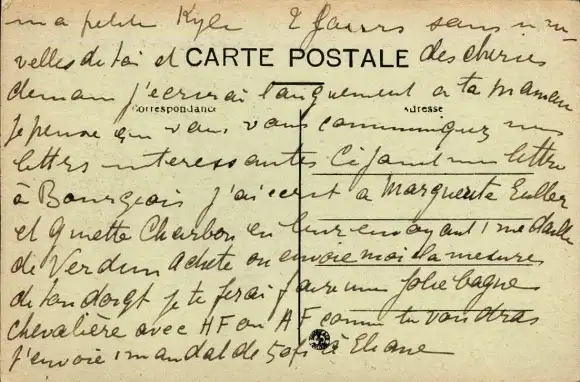 ma petite Kyle 2 jours sans nou-
velles de toi et CARTE POSTALE des cheries
demain j'ecrirai longuement a ta maman
Correspondance Adresse
Je pense que vous vous communiquez mes
lettres interessantes Ci joint une lettre
à Bourgeois j'ai ecrit a Marguerite Euller
et Ginette Charbon en leur envoyant 1 medaille
de Verdun Achete ou envoie moi la mesure
de ton doigt je te ferai faire une jolie bague
chevalière avec HF ou AF comme tu voudras
J'envoie 1 mandat de 50f à Eliane